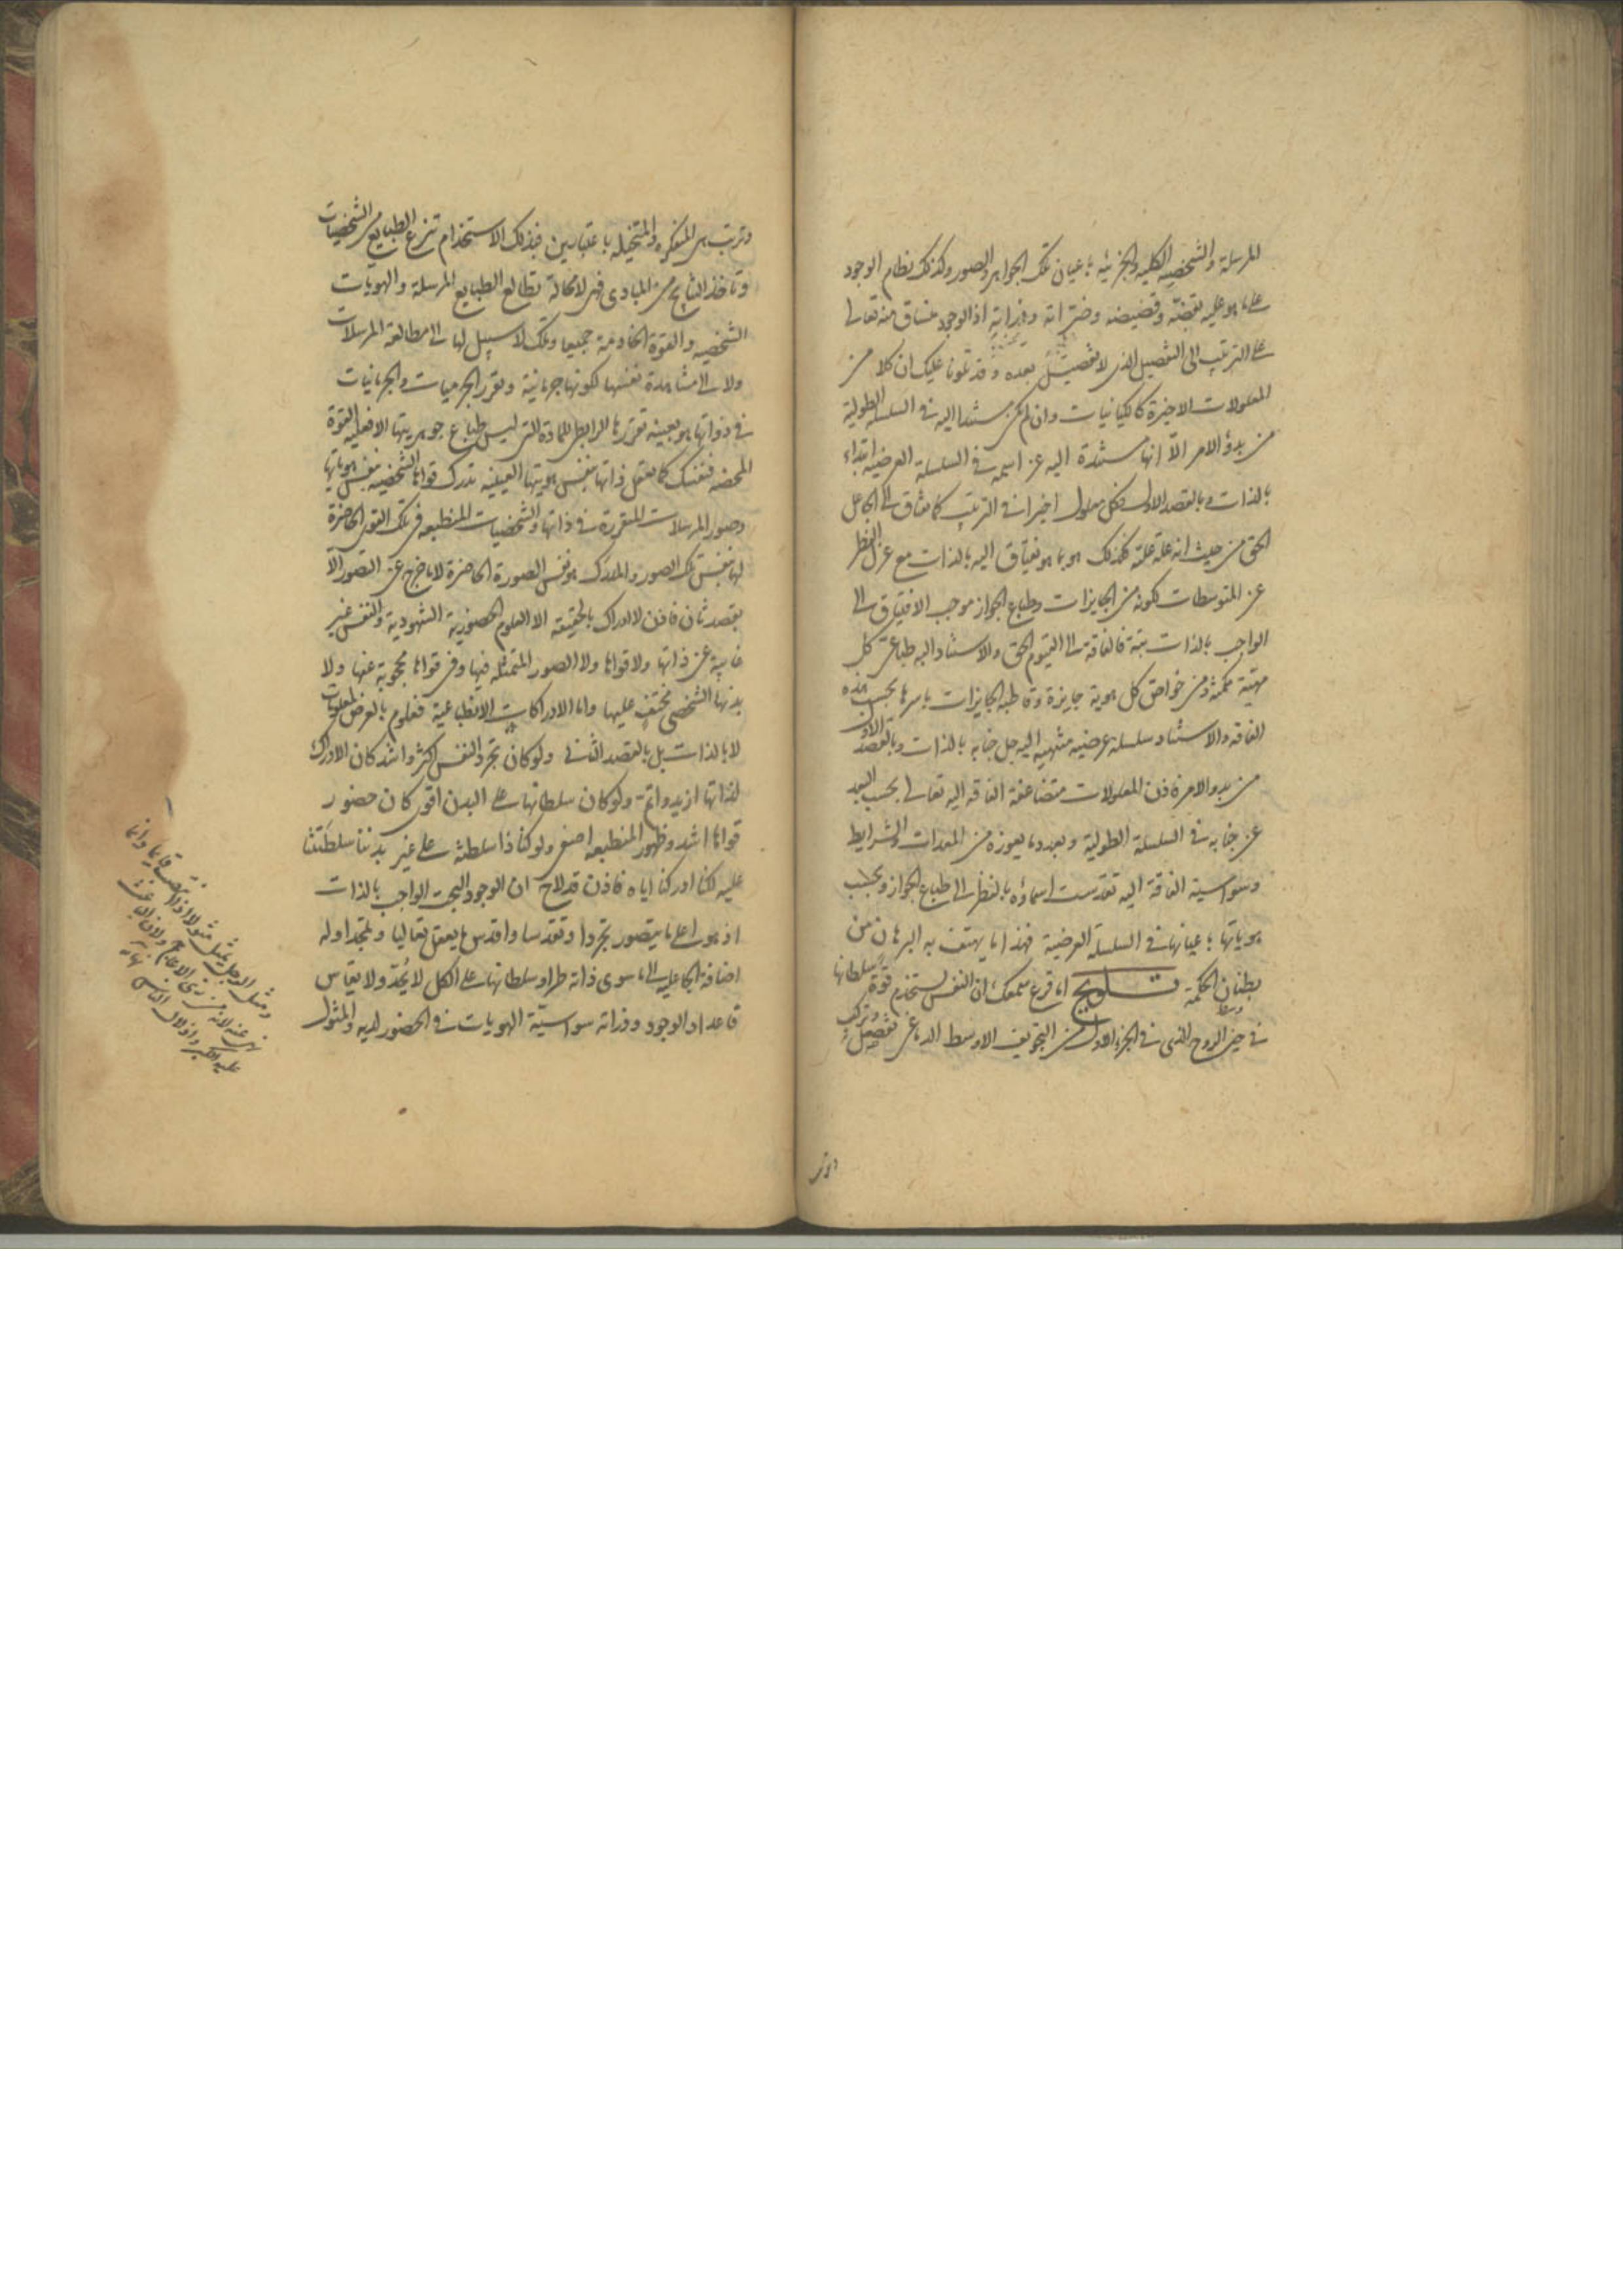 المرسلة والشخصية الكلية والجزئية باعيان تلك الجواهر والصور وكذلك نظام الوجود
على ما هو عليه بقضه وقضيضه اذ الوجود منساق منه تعالى
على الترتيب الى التفصيل الذى لا تفصيل بعده وقد تلونا عليك ان كلا من
المعلولات الاخيرة كالكيانيات وان لم يكن مستندا اليه فى السلسلة الطولية
من بدؤ الامر الا انها مستندة اليه عز اسمه فى السلسلة العرضية ابتداء
بالذات وبالقصد الاول فكل معلول اخير فى الترتيب كما يفتاق الى الجاعل
الحق من حيث انه علة علته فكذلك هو بما هو يفتاق اليه بالذات مع عزل النظر
عن المتوسطات لكونه من الجايزات وطباع الجواز موجب الافتياق الى
الواجب بالذات بتة فالفاقة الى القيوم الحق والاستناد اليه طباعى كل
مهية ممكنة ومن خواص كل هوية جايزة وقاطبة الجايزات باسرها بحسب هذه
الفاقة والاستناد سلسلة عرضية منتهية اليه جل جنابه بالذات وبالقصد الاول
من بدو الامر فاذن المعلولات متضاعفة الفاقة اليه تعالى بحسب البعد
عن جنابه فى السلسلة الطولية وبعدد ما يعوزه من المعدات والشرايط
وسواسية الفاقة اليه تقدست اسماؤه بالنظر الى طباع الجواز وبحسب
هوياتها باعيانها فى السلسلة العرضية فهذا ما يهتف به البرهان من
بطنان الحكمة تلويح اما قرع سمعك ان النفس تستخدم قوة سلطانها
فى حيز الروح الذى فى الجزء الاول من التجويف الاوسط الدماغى تفصيل وتركب
وترتب هى المتفكرة والمتخيلة باعتبارين فبذلك الاستخدام تنزع الطبايع من الشخصيات
وتاخذ النتايج من المبادى فهى لا محالة تطالع الطبايع المرسلة والهويات
الشخصية والقوة الخادمة جميعا وتلك لا سبيل لها الى مطالعة المرسلات
ولا الى مشاهدة نفسها لكونها جرمانية وتقرر الجرميات والجرمانيات
فى ذواتها هو بعينه تقررها الرابطى للمادة التى ليس طباع جوهريتها الا فعلية القوة
المحضة فنفسك كما تعقل ذاتها بنفس هويتها العينية تدرك قواها الشخصية بنفس هوياتها
وصور المرسلات المتقررة فى ذاتها والشخصيات المنطبعة فى تلك القوى الحاضرة
لها بنفس تلك الصور والمدرك هو نفس الصورة الحاضرة لا ما خرج عن التصور الا
بقصد ثان فاذن لا ادراك بالحقيقة الا العلوم الحضورية الشهودية والنفس غير
غايبة عن ذاتها ولا قواها ولا الصور المتمثلة فيها وفى قواها محجوبة عنها ولا
بدنها الشخصى مختف عليها واما الادراكات الانطباعية فعلوم بالعرض لمعلومات
لا بالذات بل بالقصد الثانى ولو كان تجرد النفس اكثر واشد كان الادراك
لذاتها ازيد واتم ولو كان سلطانها على البدن اقوى كان حضور
قواها اشد وظهور المنطبعة اصنع ولو كنا ذا سلطنة على غير بدننا سلطنتنا
عليه لكنا ادركنا اياه فاذن قد لاح ان الوجود البحت الواجب بالذات
اذ هو اعلى ما يتصور تجردا وتقدسا واقدس ما يعقل تعاليا وتمجدا وله
اضافة الجاعلية الى ما سوى ذاته طرا وسلطانها على الكل لا يحد ولا يقاس
فاعداد الوجود وذراته سواسية الهويات فى الحضور لديه والمثول